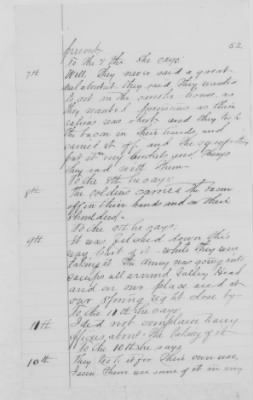 52
present
To the 7th she says:
7th Well, they never said a great
deal about it. they said they wanted
to get in the smoke house, as
they wanted provisions as their
rations was short and they took
the bacon in their hands, and
carried it off, and the
put it in
they had with them.
To the 8th he says:
8th The soldiers carried the bacon
off in their hands and on their
shoulders.
To the 9th he says.
9th It was fetched down this
way, part of it while they were
taking it the army was going into
camps all around
and on our place and at
our spring right close by-
To the 10th she says
11th I did not complain to any
officer about the taking of it
To the 10th she says
10th They took it for their own use,
I seen them use some of it in my